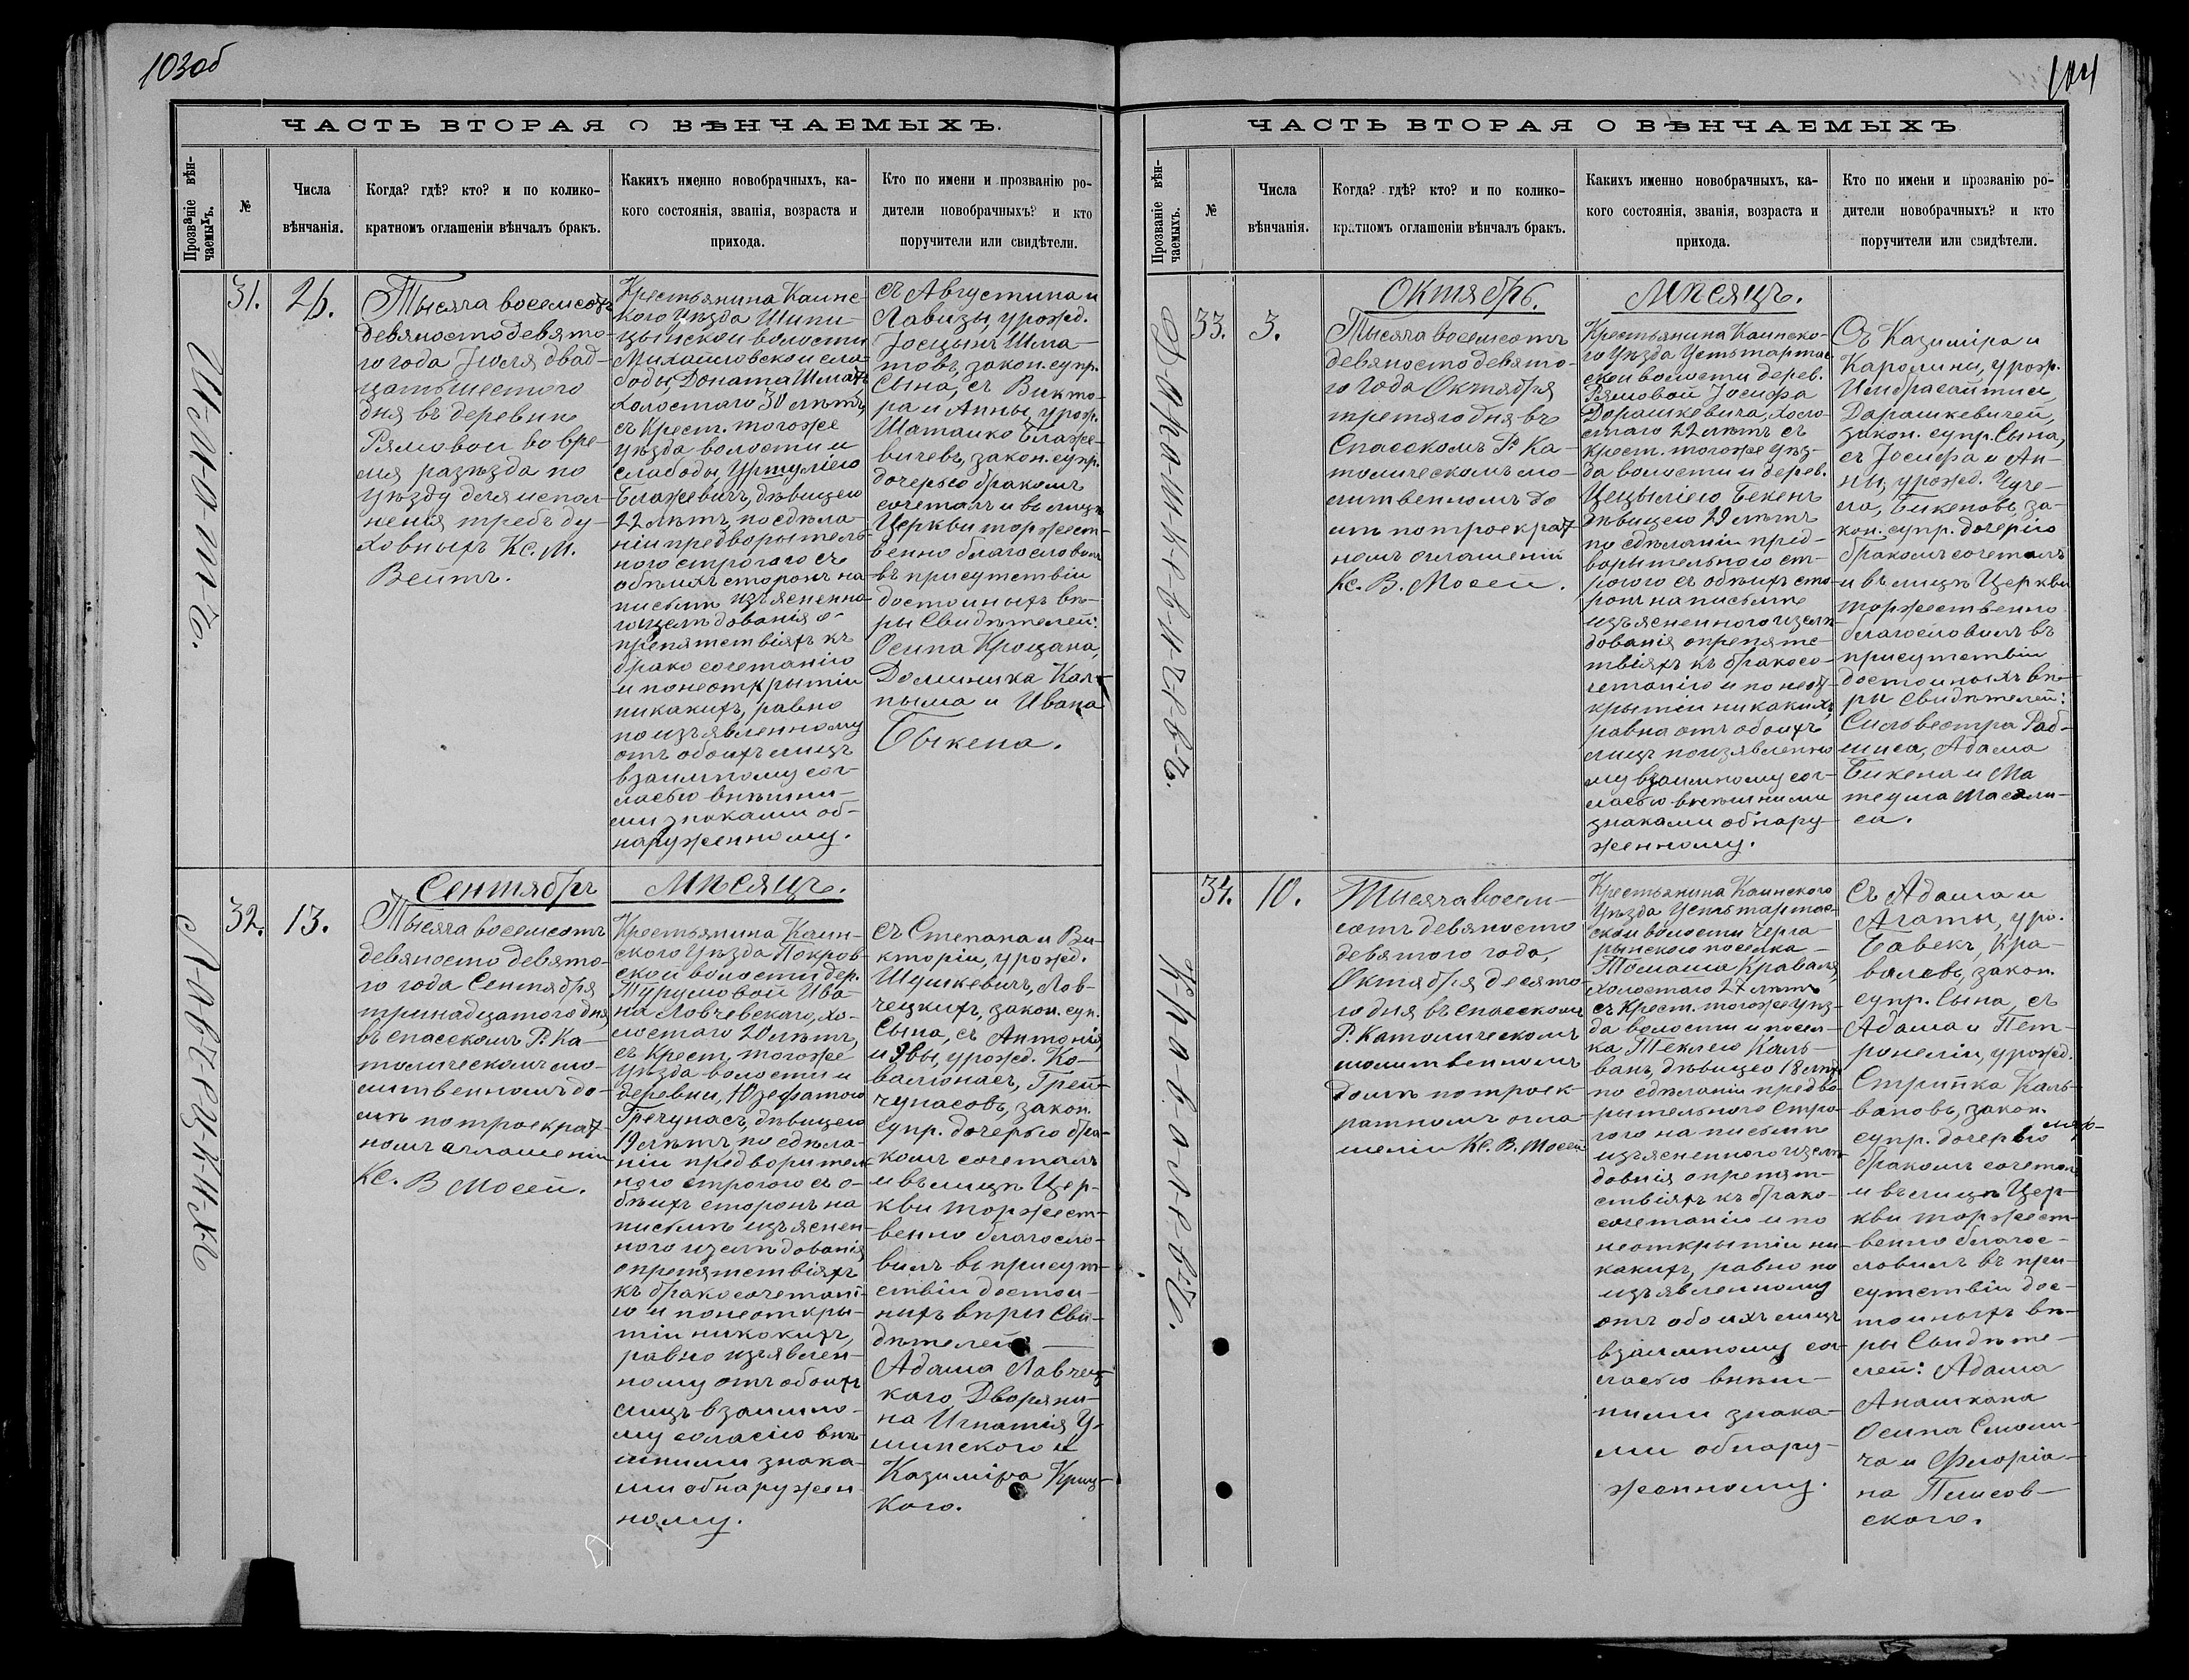 103об
ЧАСТЬ ВТОРАЯ О ВѢНЧАЕМЫХЪ.
Прозваніе вѣн-
чаемыхъ.
№
Числа
вѣнчанія.
Когда? гдѣ? кто? и по колико-
кратномъ оглашеніи вѣнчалъ бракъ.
Какихъ именно новобрачныхъ, ка-
кого состоянія, званія, возраста и
прихода.
Кто по имени и прозванію ро-
дители новобрачныхъ? и кто
поручители или свидѣтели.
Ш-м-а-т-ъ.
31.
26.
Тысяча восемсотъ
девяносто девято-
го года Іюля двад-
цатьшестого
дня въ деревнѣ
Рямовой во вре-
мя разъѣзда по
уѣзду для испол-
ненія требъ ду-
ховныхъ Кс. М.
Вейтъ.
Крестьянина Каинс-
кого Уѣзда Шипи-
цынской волости
Михайловской сло-
боды, Доната Шматъ
холостаго 30 лѣтъ
съ Крест. тогоже
уѣзда волости и
слабоды Уршулію
Блажевичъ, дѣвицею
22 лѣтъ, по сдѣла-
ніи предворытель-
ного строгого съ
обѣихъ сторонъ на
письмѣ изъясненно-
го изслѣдованія о
препятствіяхъ къ
брако сочетанію
и по неоткрытіи
никакихъ, равно
по изъявленному
отъ обоихъ лицъ
взаимному сог-
ласью внѣшни-
ми знаками об-
наруженному.
съ Августина и
Лавизы, урожд.
Іоцынъ Шма-
товъ, закон. супр.
Сына, съ Викто-
ра и Анны, урож.
Шатайко Блаже-
вичевъ, закон. супр.
дочерью бракомъ
сочеталъ и въ лицѣ
Церкви торжест-
венно благословилъ
въ присутствіи
достойныхъ вѣ-
ры Свидѣтелей:
Осипа Крощана,
Доминика Кал-
ныма и Ивана
Быкена.
Л-а-в-ч-е-ц-к-и-х-ъ
Сентябрь Мѣсяцъ.
32.
13.
Тысяча восемсотъ
девяносто девято-
го года Сентября
тринадцатого дня,
въ Спасскомъ Р. Ка-
толическомъ мо-
литвенномъ до-
мѣ по троекрат-
номъ аглашеніи
Кс. В Мосей.
Крестьянина Каин-
ского Уѣзда Покров-
ской волости дер.
Турумовой Ива-
на Ловчевского, хо-
лостаго 20 лѣтъ,
съ Крест, тогоже
Уѣзда волости и
деревни, Юзефатою
Гречунасъ, дѣвицею
19 лѣтъ, по сдѣла-
ніи предворител
ного строгого съ о-
бѣихъ сторонъ на
письмѣ изъяснен-
ного изслѣдованія
о препятствіяхъ
къ бракосочетані-
ю и по неоткры-
тіи никокихъ,
равно изъявлен-
ному отъ обоихъ
лицъ взаимно-
му согласію внѣ-
шними знака-
ми обнаружен-
ному.
съ Степана и Ви-
кторіи, урожд.
Шушкевичъ, Лов-
чецкихъ, закон. суп.
Сына, съ Антонія
и Эвы, урожд. Ко-
валіонасъ, Гре-
чунасовъ, закон.
Супр. дочерью бра-
комъ сочеталъ
и въ лицѣ Цер-
кви торжест-
венно благосло-
вилъ въ присут-
ствіи достой-
нихъ вѣры Сви-
дѣтелей: —
Адама Лавчец-
каго, Дворяни-
на Игнатія У-
минского и
Казиміра Криц-
кого.
104
ЧАСТЬ ВТОРАЯ О ВѢНЧАЕМЫХЪ
Прозваніе вѣн-
чаемыхъ.
№
Числа
вѣнчанія.
Когда? гдѣ? кто? и по колико-
кратномъ оглашеніи вѣнчалъ бракъ.
Какихъ именно новобрачныхъ, ка-
кого состоянія, званія, возраста и
прихода.
Кто по имени и прозванію ро-
дители новобрачныхъ? и кто
поручители или свидѣтели.
Д-а-р-а-ш-к-е-в-и-ч-е-в-ъ.
Октябрь. Мѣсяцъ.
33.
3.
Тысяча восемсотъ
девяносто девято-
го года Октября
третяго дня въ
Спасскомъ Р. Ка-
толическомъ мо-
литвенномъ до
мѣ по троекрат-
номъ оглашеніи
Кс. В. Мосей.
Крестьянина Каинско-
го Уѣзда Устьтартас
ской волости дерев.
Рямовой Іосифа
Дорашкевича, холо-
стаго 22 лѣтъ съ
Крест. тогоже Уѣз-
да волости и дерев.
Цецыліею Бекенъ
дѣвицею 29 лѣтъ
по сдѣланіи пред-
ворытельного ст-
рогого съ обѣихъ сто-
ронъ на письмѣ
изъясненного изслѣ-
дованія опрепятс-
твіяхъ къ бракосо-
четанію и по неот-
крытіи никакихъ,
равна отъ обоихъ
лицъ поизявленно
му взаимному сог-
ласью внѣшними
знаками обнару-
женному.
Съ Казиміра и
Каролины, урож.
Имбрасайтисъ,
Дарашкевичей,
закон. супр. Сына,
съ Іосифа и Ан-
ны, урожд. Чуче-
ло, Бикеновъ, за-
кон. супр. дочерію
бракомъ сочеталъ
и въ лицѣ Церкви
торжественно
благословилъ въ
присутствіи
достойныхъ вѣ-
ры свидѣтелей:
Сильвестра Раб-
шиса, Адама
Бикена и Ма
теуша Масали-
са.
К-р-а-в-а-л-е-в-ъ.
34.
10.
Тысяча восем-
сотъ девяносто
девятого года,
Октября десято-
го дня въ Спасскомъ
Р. Католическомъ
молитвенномъ
домѣ по троек-
ратномъ огла-
шеніи Кс. В. Мосей
Крестьянина Каинского
Уѣзда Устьтартас-
ской волости Черга-
рынского поселка —
Томаша Краваля,
холостаго 27 лѣтъ
съ Крест. тогоже уѣз-
да волости и посел-
ка Теклею Каль-
ванъ, дѣвицею 18 лѣтъ
по сдѣланіи предво-
рытельного стро-
гого на письмѣ
изъясненного изслѣ-
довнія опрепят-
ствіяхъ къ брако-
сочетанію и по
неоткрытіи ни-
какихъ, равно по
изъявленному
отъ обоихъ лицъ
взаимному сог-
ласью внѣш-
ними знака-
ми обнару-
женному.
Съ Адама и
Агаты, уро.
Бавекъ, Кра-
валевъ, закон.
супр. Сына, съ
Адама и Пет-
ронеліи, урожд.
Стрипка Каль-
вановъ, закон.
супр. дочерью
бракомъ сочеталъ
и въ лицѣ Цер-
кви торжест-
венно благос-
ловилъ въ при-
сутствіи дос-
тойныхъ вѣ-
ры Свидѣте-
лей: Адама
Анашкана
Осипа Смоли-
ча и Флоріа-
на Плисов-
ского.